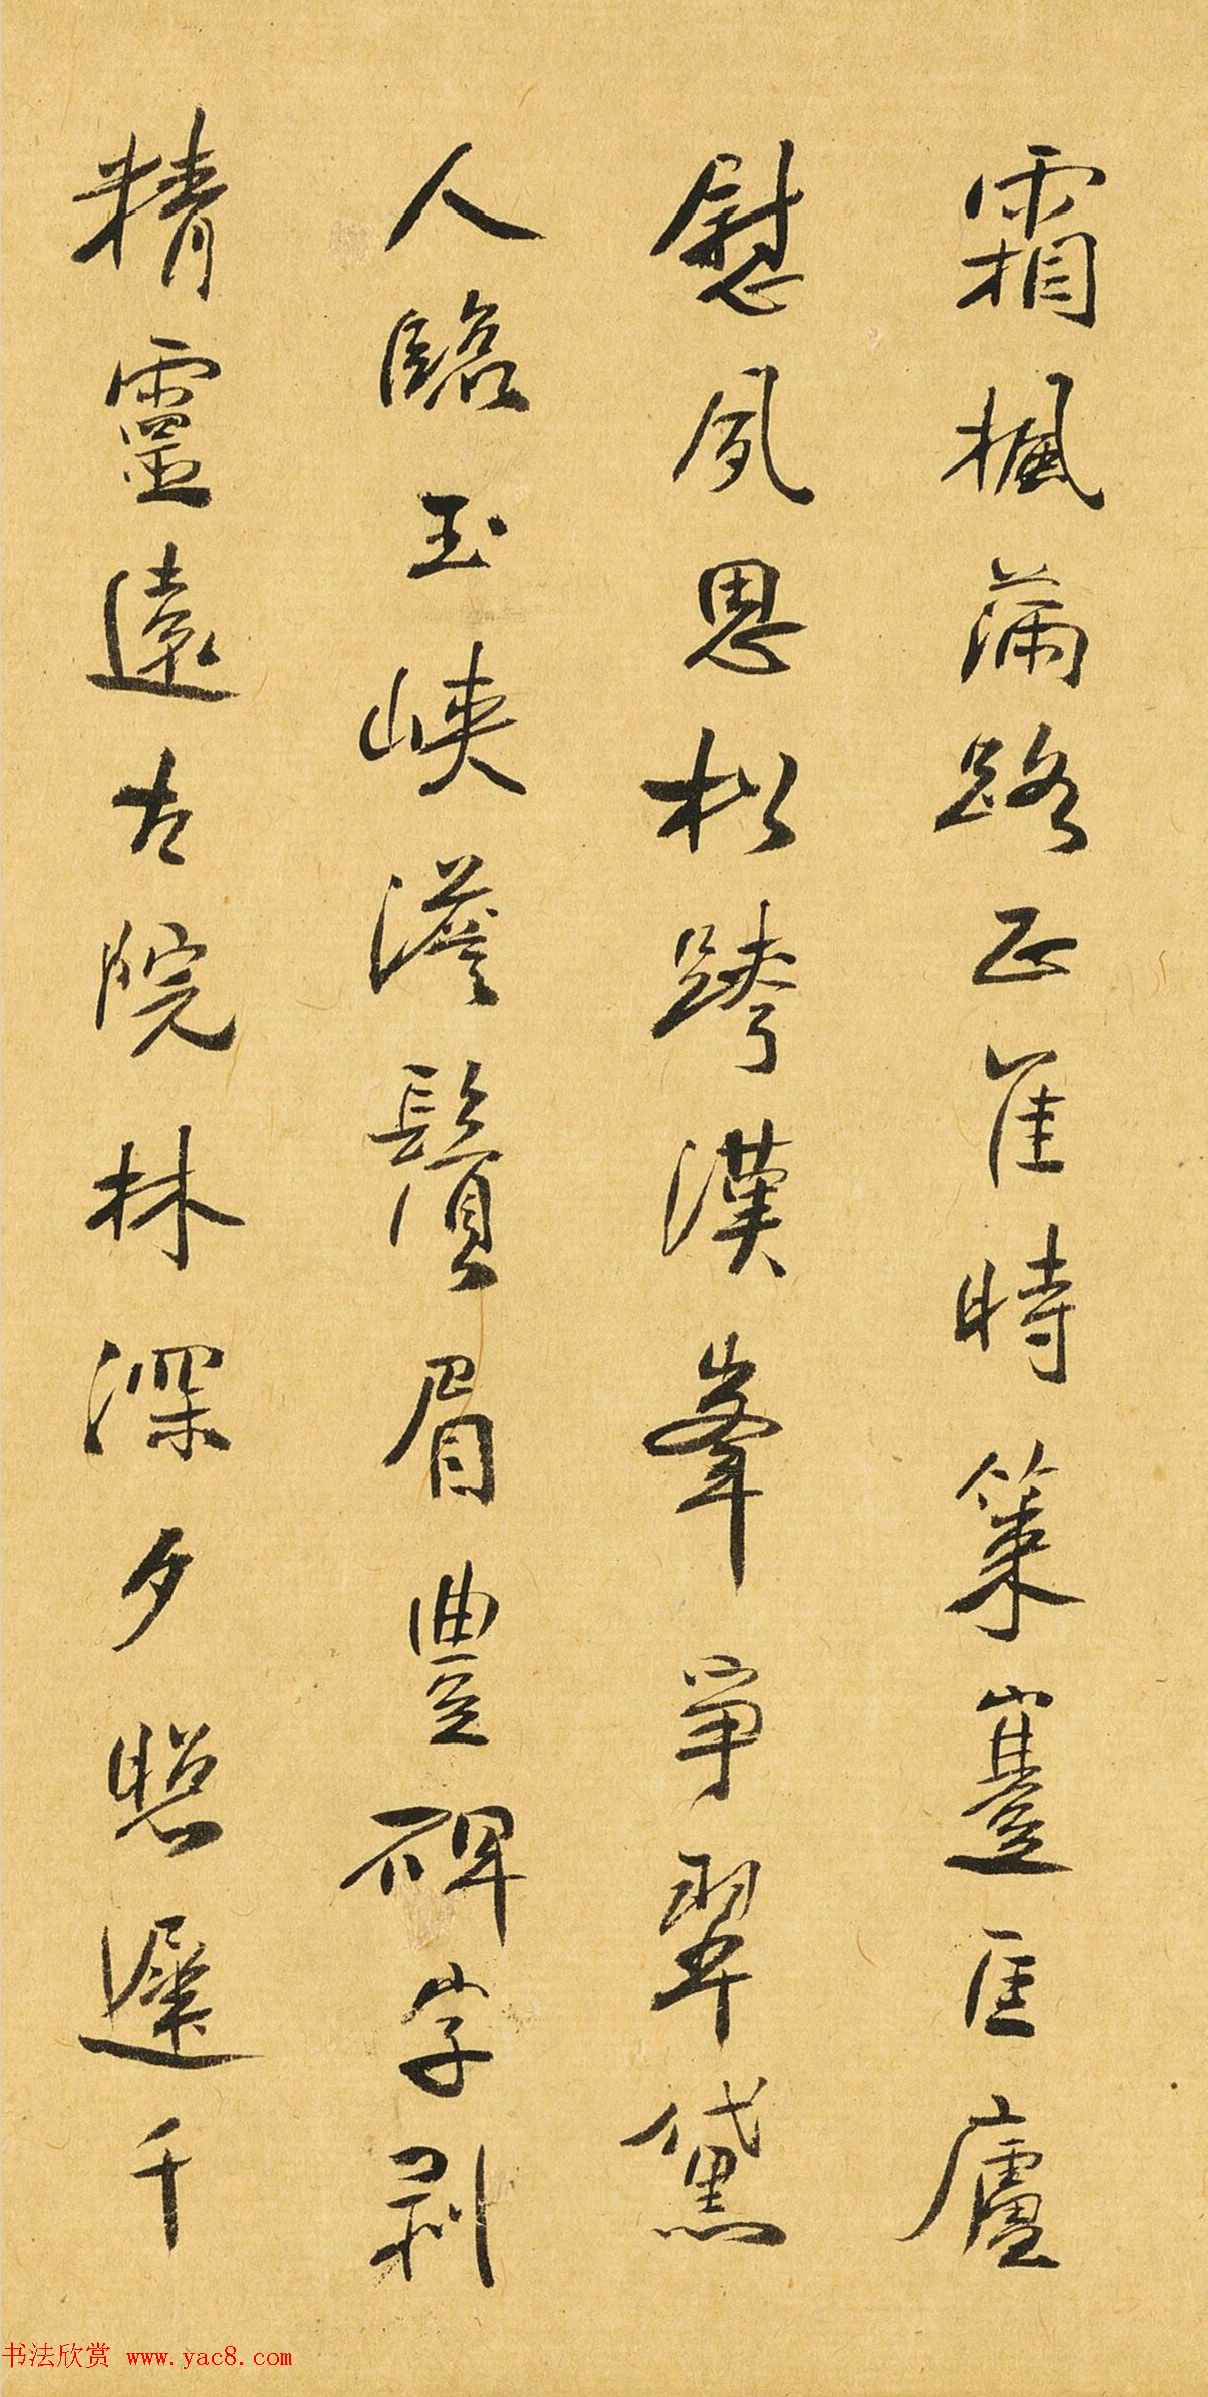 霜楓滿路正離時策蹇匡廬
慰夙思松跨漢峯爭翠黛
人臨玉峽澹鬚眉豐碑字剥
精靈遠古院林深夕照遲千
书法欣赏 www.yac8.com